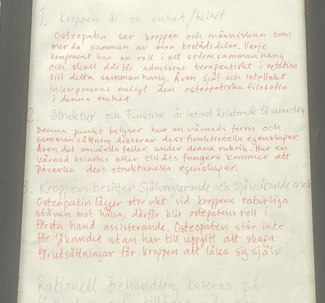 1. Kroppen är en enhet/helhet
Osteopatin ser kroppen och människan som
mer än summan av sina beståndsdelar. Varje
komponent har en roll i ett större sammanhang
och skall därför adressas terapeutiskt i relation
till detta sammanhang. Även själ och intellekt
inkorporeras enligt den osteopatiska filosofin
i denna enhet
2. Struktur och Funktion är intimt Relaterade till varandra
Denna punkt belyser hur en vävnads form och
sammansättning dikterar dess funktionella egenskaper.
Även det omvända faller under denna rubrik. Hur en
vävnad belastas eller tillåts fungera kommer att
påverka dess strukturella egenskaper.
3. Kroppen besitter Självreglerande och Självläkande
Osteopatin lägger stor vikt vid kroppens naturliga
strävan mot hälsa, därför blir osteopatens roll i
första hand assisterande. Osteopaten står inte
för läkandet utan har till uppgift att skapa
förutsättningar för kroppen att läka sig själv
Rationell Behandling baseras på